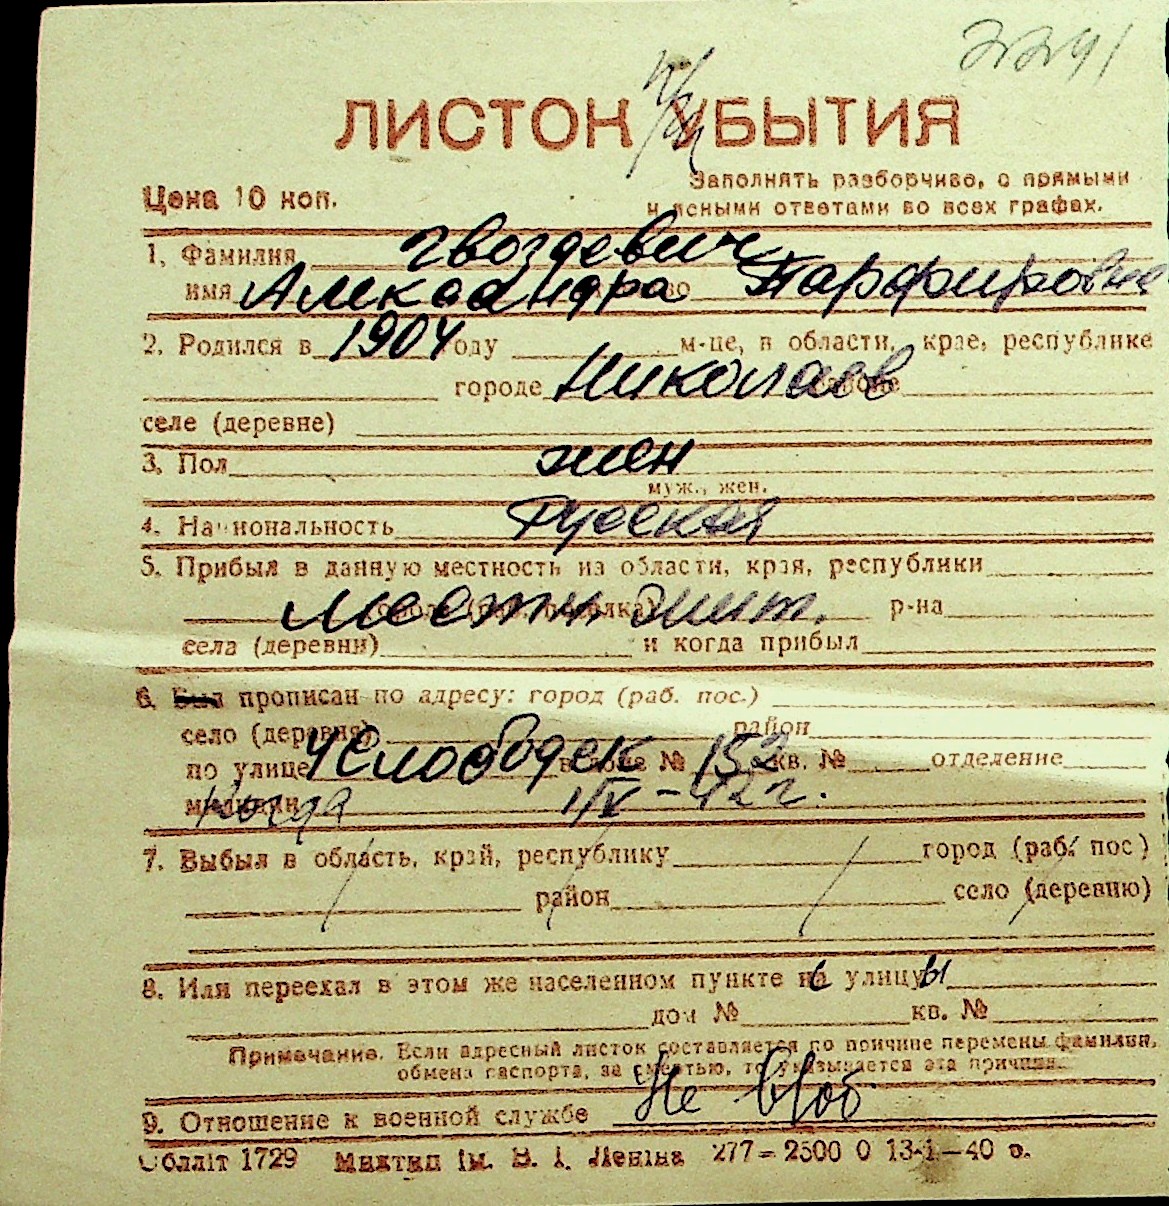 2241
ЛИСТОК УБЫТИЯ
Цена 10 коп.
Заполнять разборчиво, с прямыми
и ясными ответами во всех графах.
1. Фамилия Гвоздевич
имя Александра Парфировна
2. Родился в 1904 году м-це, в области, крае, республике
городе Николаев районе
селе (деревне)
3. Пол жен
муж., жен.
4. Национальность Русская
5. Прибыл в данную местность из области, края, республики
города (раб. поселка) местн. жит. р-на
села (деревни) и когда прибыл
6. Был прописан по адресу: город (раб. пос.)
село (деревня) район
по улице 4 Слободск в доме № 152 кв. № отделение
милиции Когда 1/IV-42 г.
7. Выбыл в область, край, республику город (раб. пос)
район село (деревню)
8. Или переехал в этом же населенном пункте на с улицу ы
дом № кв. №
Примечание. Если адресный листок составляется по причине перемены фамилии,
обмена паспорта, за смертью, то указывается эта причина.
9. Отношение к военной службе Не в/об
Обллiт 1729 Миктип iм. В. I. Ленiна 277-2500 0 13-1-40 р.